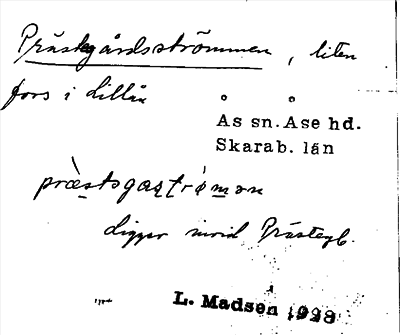 Prästgårdsströmmen, liten
fors i Lillån
Ås sn. Åse hd.
Skarab. län
ligger invid Prästeg.
L. Madsen 1928